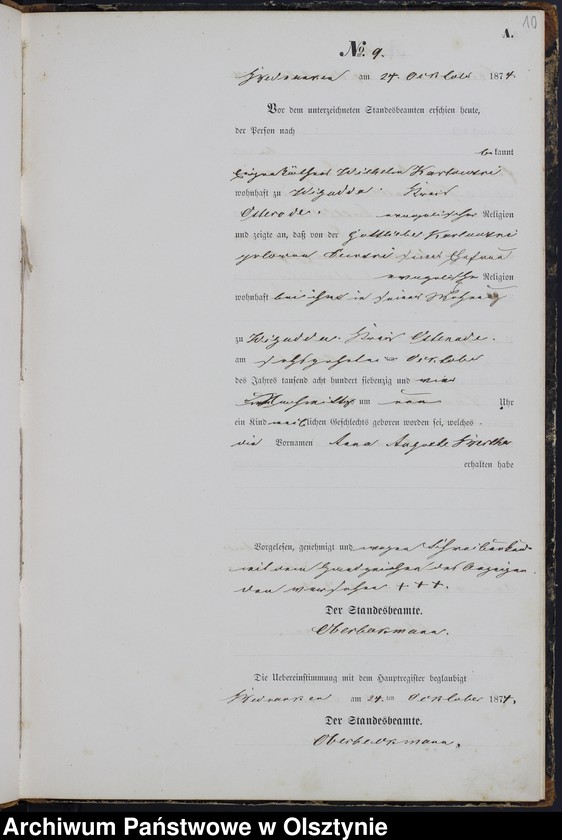 10
A.
No. 9.
am 24. October 1874.
Vor dem unterzeichneten Standesbeamten erschien heute,
der Person nach
bekannt
Eigenkäthner Wilhelm
wohnhaft zu Kreis
Osterode. evangelischer Religion
und zeigte an, daß von der Gottliebe
geborenen seiner Ehefrau
evangelischer Religion
wohnhaft bei ihm in seiner Wohnung
zu Kreis Osterode.
am sechszehnten October
des Jahres tausend acht hundert siebenzig und vier
Nachmittags um Uhr
ein Kind weiblichen Geschlechts geboren worden sei, welches
die Vornamen Anna Auguste Bertha
erhalten habe
Vorgelesen, genehmigt und wegen
mit dem Handzeichen des Anzeigen
den versehen +++.
Der Standesbeamte.
Die Uebereinstimmung mit dem Hauptregister beglaubigt
am 24. ten October 1874.
Der Standesbeamte.
Archiwum Państwowe w Olsztynie